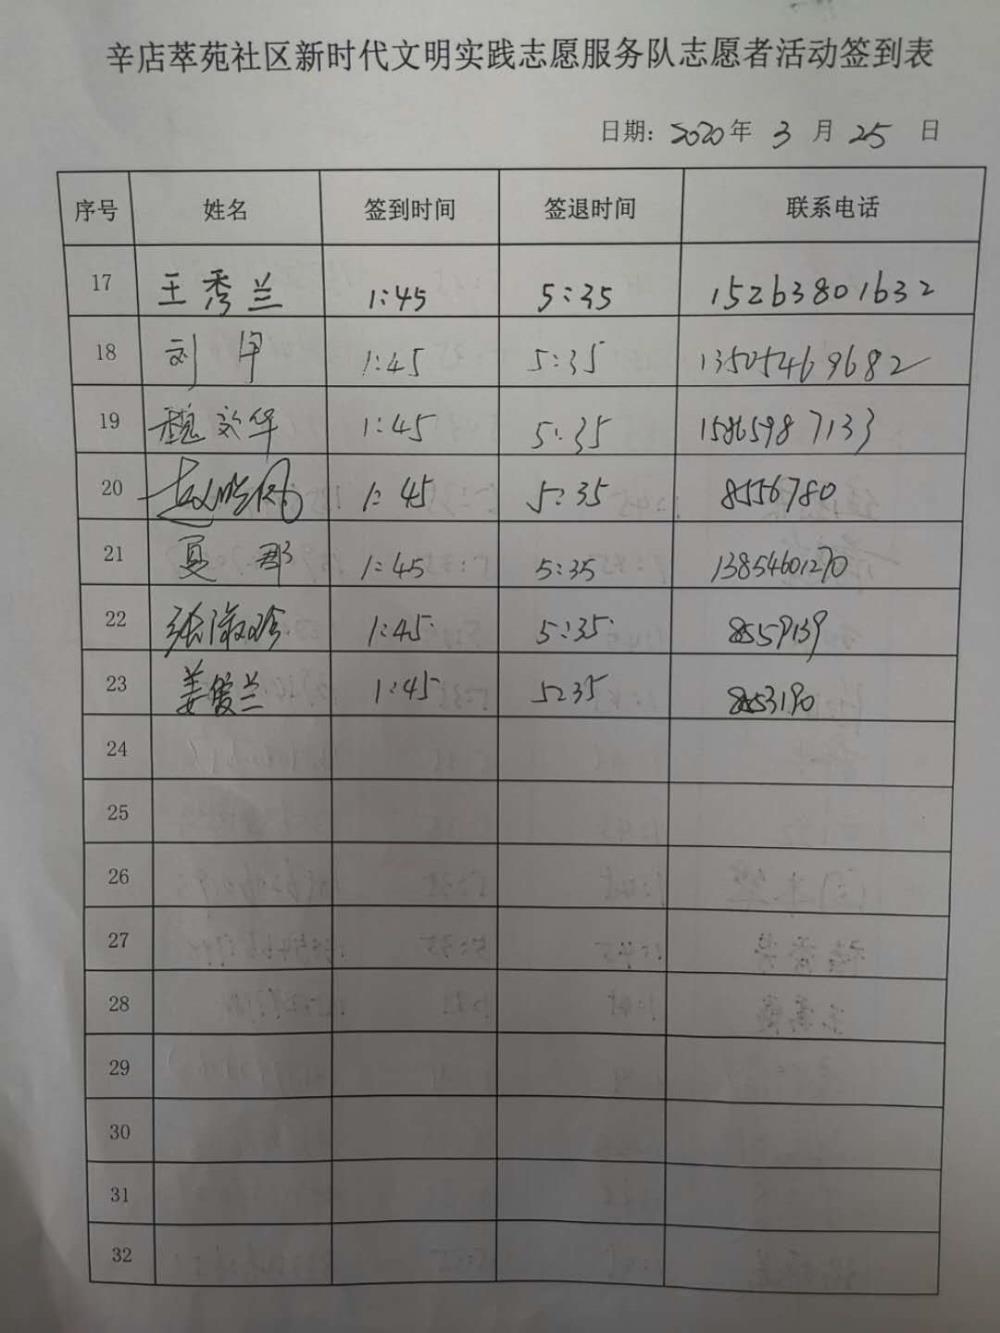 辛店萃苑社区新时代文明实践志愿服务队志愿者活动签到表
日期：2020年 3 月 25 日
序号 姓名 签到时间 签退时间 联系电话
17 王秀兰 1:45 5:35 15263801632
18 刘 1:45 5:35 13505469682
19 魏文华 1:45 5:35 15865987133
20 1:45 5:35 8556780
21 夏郡 1:45 5:35 13854601270
22 张淑珍 1:45 5:35 8559139
23 姜爱兰 1:45 5:35 8553190
24
25
26
27
28
29
30
31
32